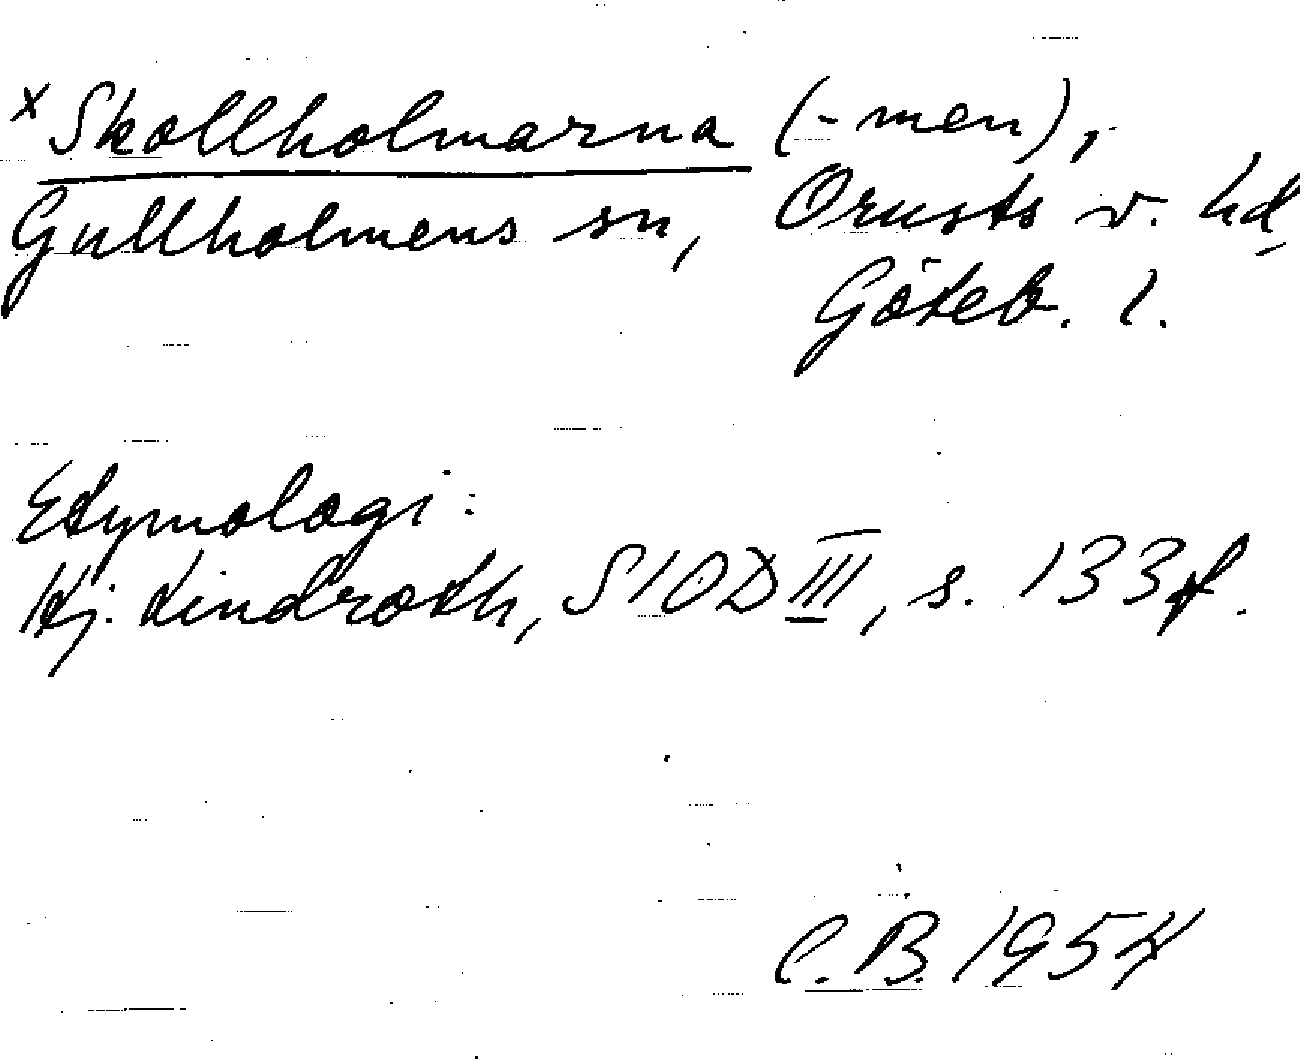 x Skollholmarna (-men),
Gullholmens sn, Orusts v. hd,
Göteb. l.
Etymologi:
Hj. Lindroth, SIOD III, s. 133 f.
C.B. 1954